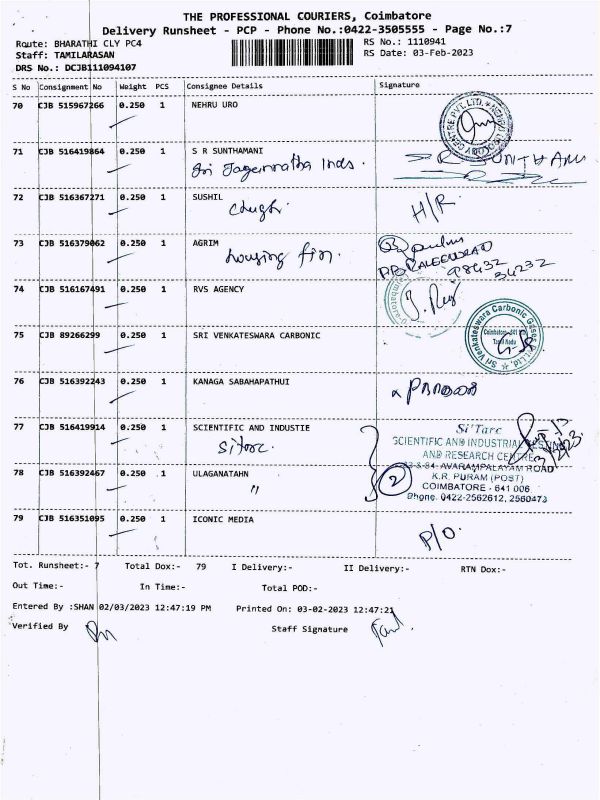 THE PROFESSIONAL COURIERS, Coimbatore
Delivery Runsheet - PCP - Phone No.:0422-3505555 - Page No.:7
Route: BHARATHI CLY PC4
RS No.: 1110941
Staff: TAMILARASAN
RS Date: 03-Feb-2023
DRS No.: DCJB111094107
S No Consignment No Weight PCS Consignee Details Signature
70 CJB 515967266 0.250 1 NEHRU URO
71 CJB 516419864 0.250 1 S R SUNTHAMANI
Sri Jagennatha Inds.
72 CJB 516367271 0.250 1 SUSHIL
chugh.
H/R.
73 CJB 516379062 0.250 1 AGRIM
housing fin.
98432
34232
74 CJB 516167491 0.250 1 RVS AGENCY
75 CJB 89266299 0.250 1 SRI VENKATESWARA CARBONIC
Sri Venkateswara Carbonic Gases Pvt. Ltd.
Coimbatore - 641
Tamil Nadu
76 CJB 516392243 0.250 1 KANAGA SABAHAPATHUI
77 CJB 516419914 0.250 1 SCIENTIFIC AND INDUSTIE
Sitarc.
Si'Tarc
SCIENTIFIC AND INDUSTRIAL TESTING
AND RESEARCH CENTRE
83 & 84, AVARAMPALAYAM ROAD
K.R. PURAM (POST)
COIMBATORE - 641 006
Phone: 0422-2562612, 2560473
78 CJB 516392467 0.250 1 ULAGANATAHN
"
2
79 CJB 516351095 0.250 1 ICONIC MEDIA
P/O.
Tot. Runsheet:- 7 Total Dox:- 79 I Delivery:- II Delivery:- RTN Dox:-
Out Time:- In Time:- Total POD:-
Entered By :SHAN 02/03/2023 12:47:19 PM Printed On: 03-02-2023 12:47:21
Verified By Staff Signature